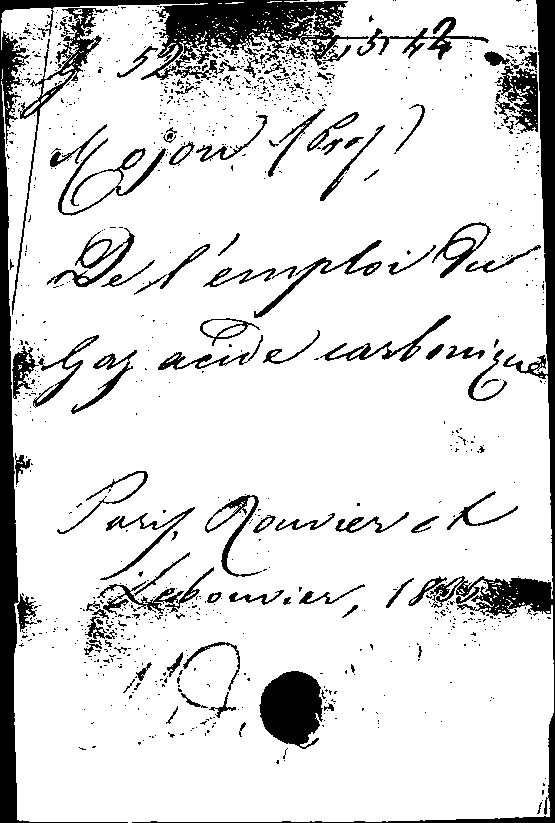 G. 52 1, 5, 42
Mojon (Prof.)
De l'emploi du
Gaz acide carbonique
Paris, Rouvier et
Lebouvier, 1835